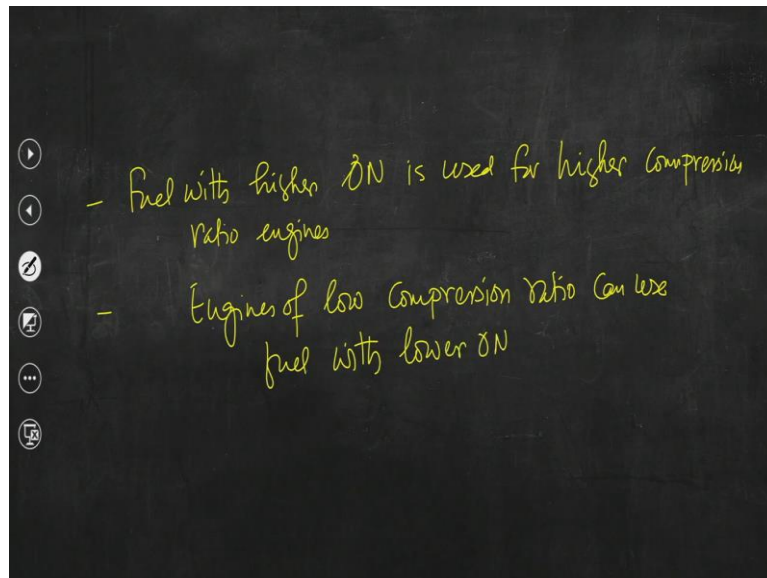 - Fuel with higher ON is used for higher compression
ratio engines
- Engines of low compression ratio can use
fuel with lower ON